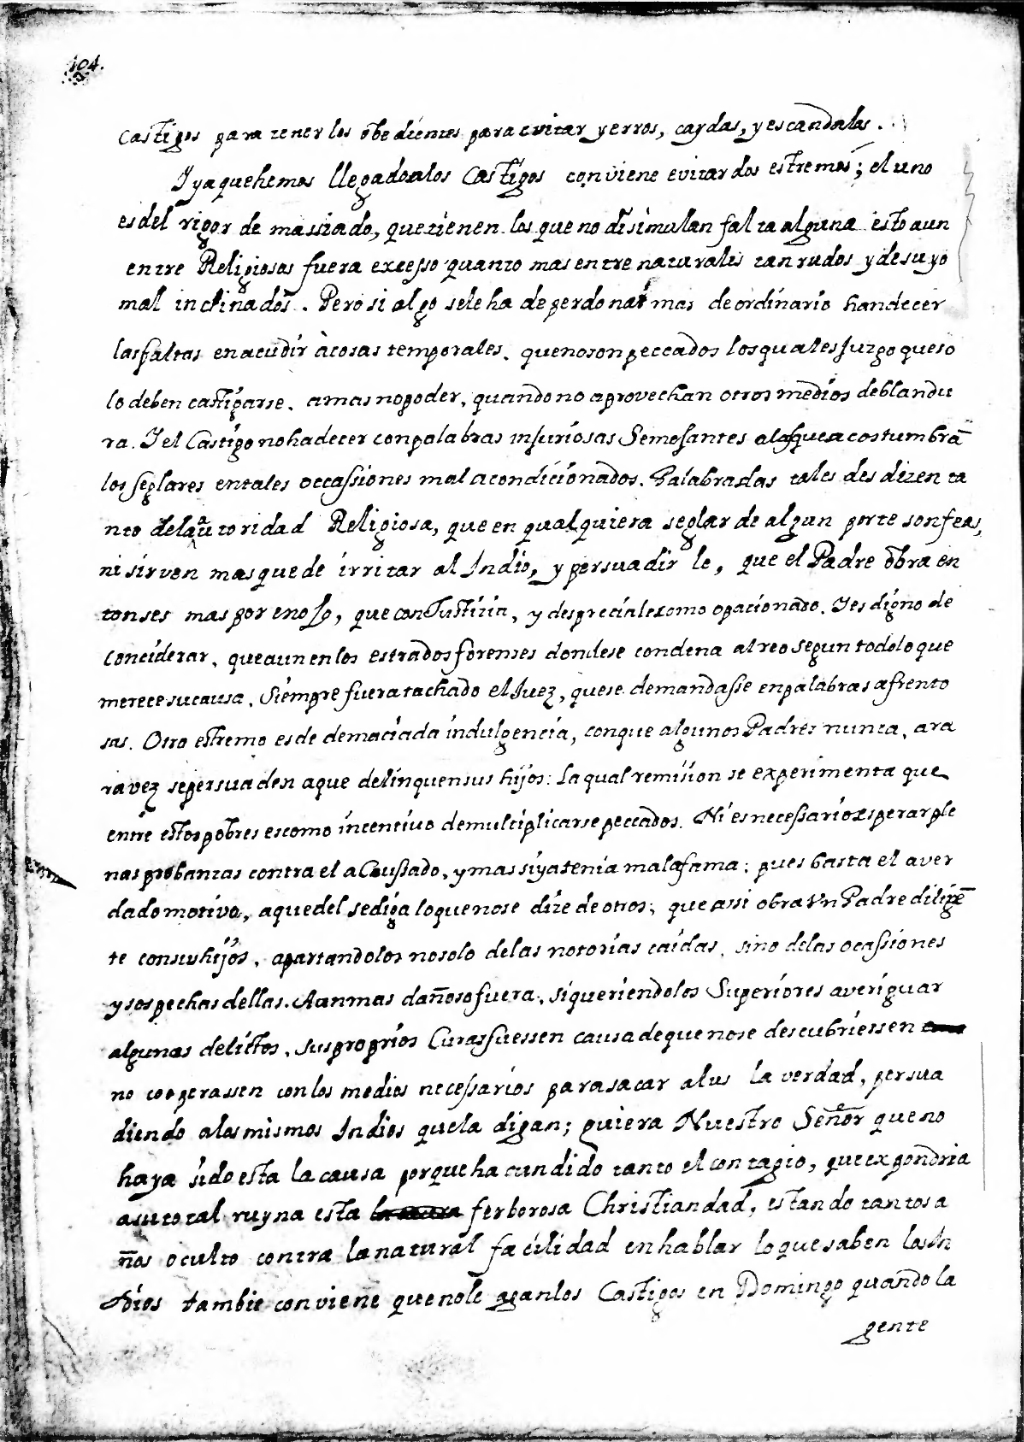 104.
castigos para tener los obedientes para evitar yerros, caydas, y escandalos.
I ya quehemos llegado alos Castigos conviene evitar dos estremos; el uno
es del rigor de massiado, quetienen los que no disimulan falta alguna esto aun
entre Religiosos fuera excesso quanto mas entre naturales tan rudos y desuyo
mal inclinados. Pero si algo sele ha de perdonar mas de ordinario han de cer
las faltas en acudir à cosas temporales, que no son peccados los quales Juzgo que so
lo deben castigarse, a mas no poder, quando no aprovechan otros medios de blandu
ra. I el Castigo no ha de cer con palabras injuriosas Semejantes alas que acostumbrã
los seglares en tales occassiones mal acondicionados. Palabradas tales desdizen ta
nto dela autoridad Religiosa, que en qualquiera seglar de algun porte son feas,
ni sirven mas que de irritar al Indio, y persuadirle, que el Padre obra en
tonses mas por enojo, que con Justicia, y despreciale como apacionado. I es digno de
conciderar, que aun en los estrados forenses donde se condena al reo segun todo lo que
merece su causa, siempre fuera tachado el Juez, que se demandasse en palabras afrento
sas. Otro estremo es de demaciada indulgencia, con que algunos Padres nunca, a ra
ra vez se persuaden a que delinquen sus hijos: la qual remision se experimenta que
entre estos pobres es como incentivo de multiplicarse peccados. Ni es necessario esperar ple
nas probanzas contra el acussado, y mas si ya tenia mala fama; pues basta el aver
dado motivo, a que del se diga lo que no se dize de otros; que assi obra vn Padre diligẽ
te con sus hijos, apartandolos no solo delas notorias caidas, sino delas ocassiones
y sospechas dellas. Aun mas dañoso fuera, si queriendo los Superiores averiguar
algunos delictos, sus proprios Curas fuessen causa de que no se descubriessen
no cooperassen con los medios necessarios para sacar a lus la verdad, persua
diendo alos mismos Indios que la digan; quiera Nuestro Señor que no
haya sido esta la causa porque ha cundido tanto el contagio, que expondria
a su total ruyna esta ferborosa Christiandad, estando tantos a
ños oculto contra la natural facilidad en hablar lo que saben los In
dios tambie conviene que no le hagan los Castigos en Domingo quando la
gente